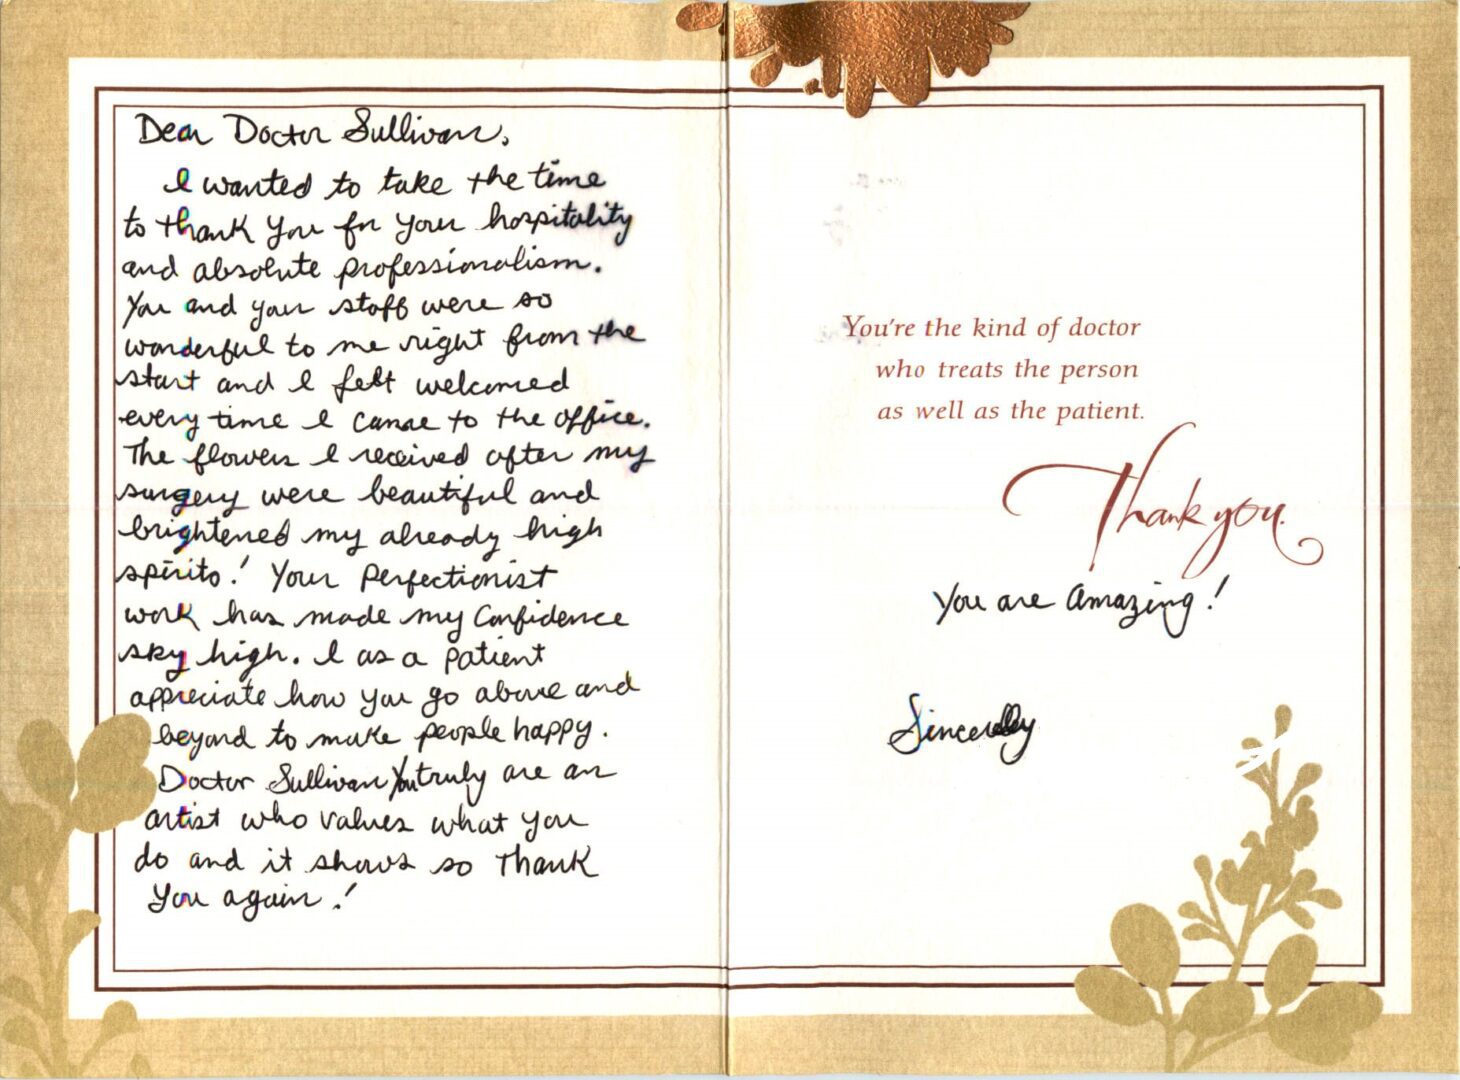 Dear Doctor Sullivan,
I wanted to take the time
to thank you for your hospitality
and absolute professionalism.
You and your staff were so
wonderful to me right from the
start and I felt welcomed
every time I came to the office.
The flowers I received after my
surgery were beautiful and
brightened my already high
spirits! Your Perfectionist
work has made my Confidence
sky high. I as a patient
appreciate how you go above and
beyond to make people happy.
Doctor Sullivan You truly are an
artist who values what you
do and it shows so Thank
you again!
You're the kind of doctor
who treats the person
as well as the patient.
Thank you.
You are Amazing!
Sincerely